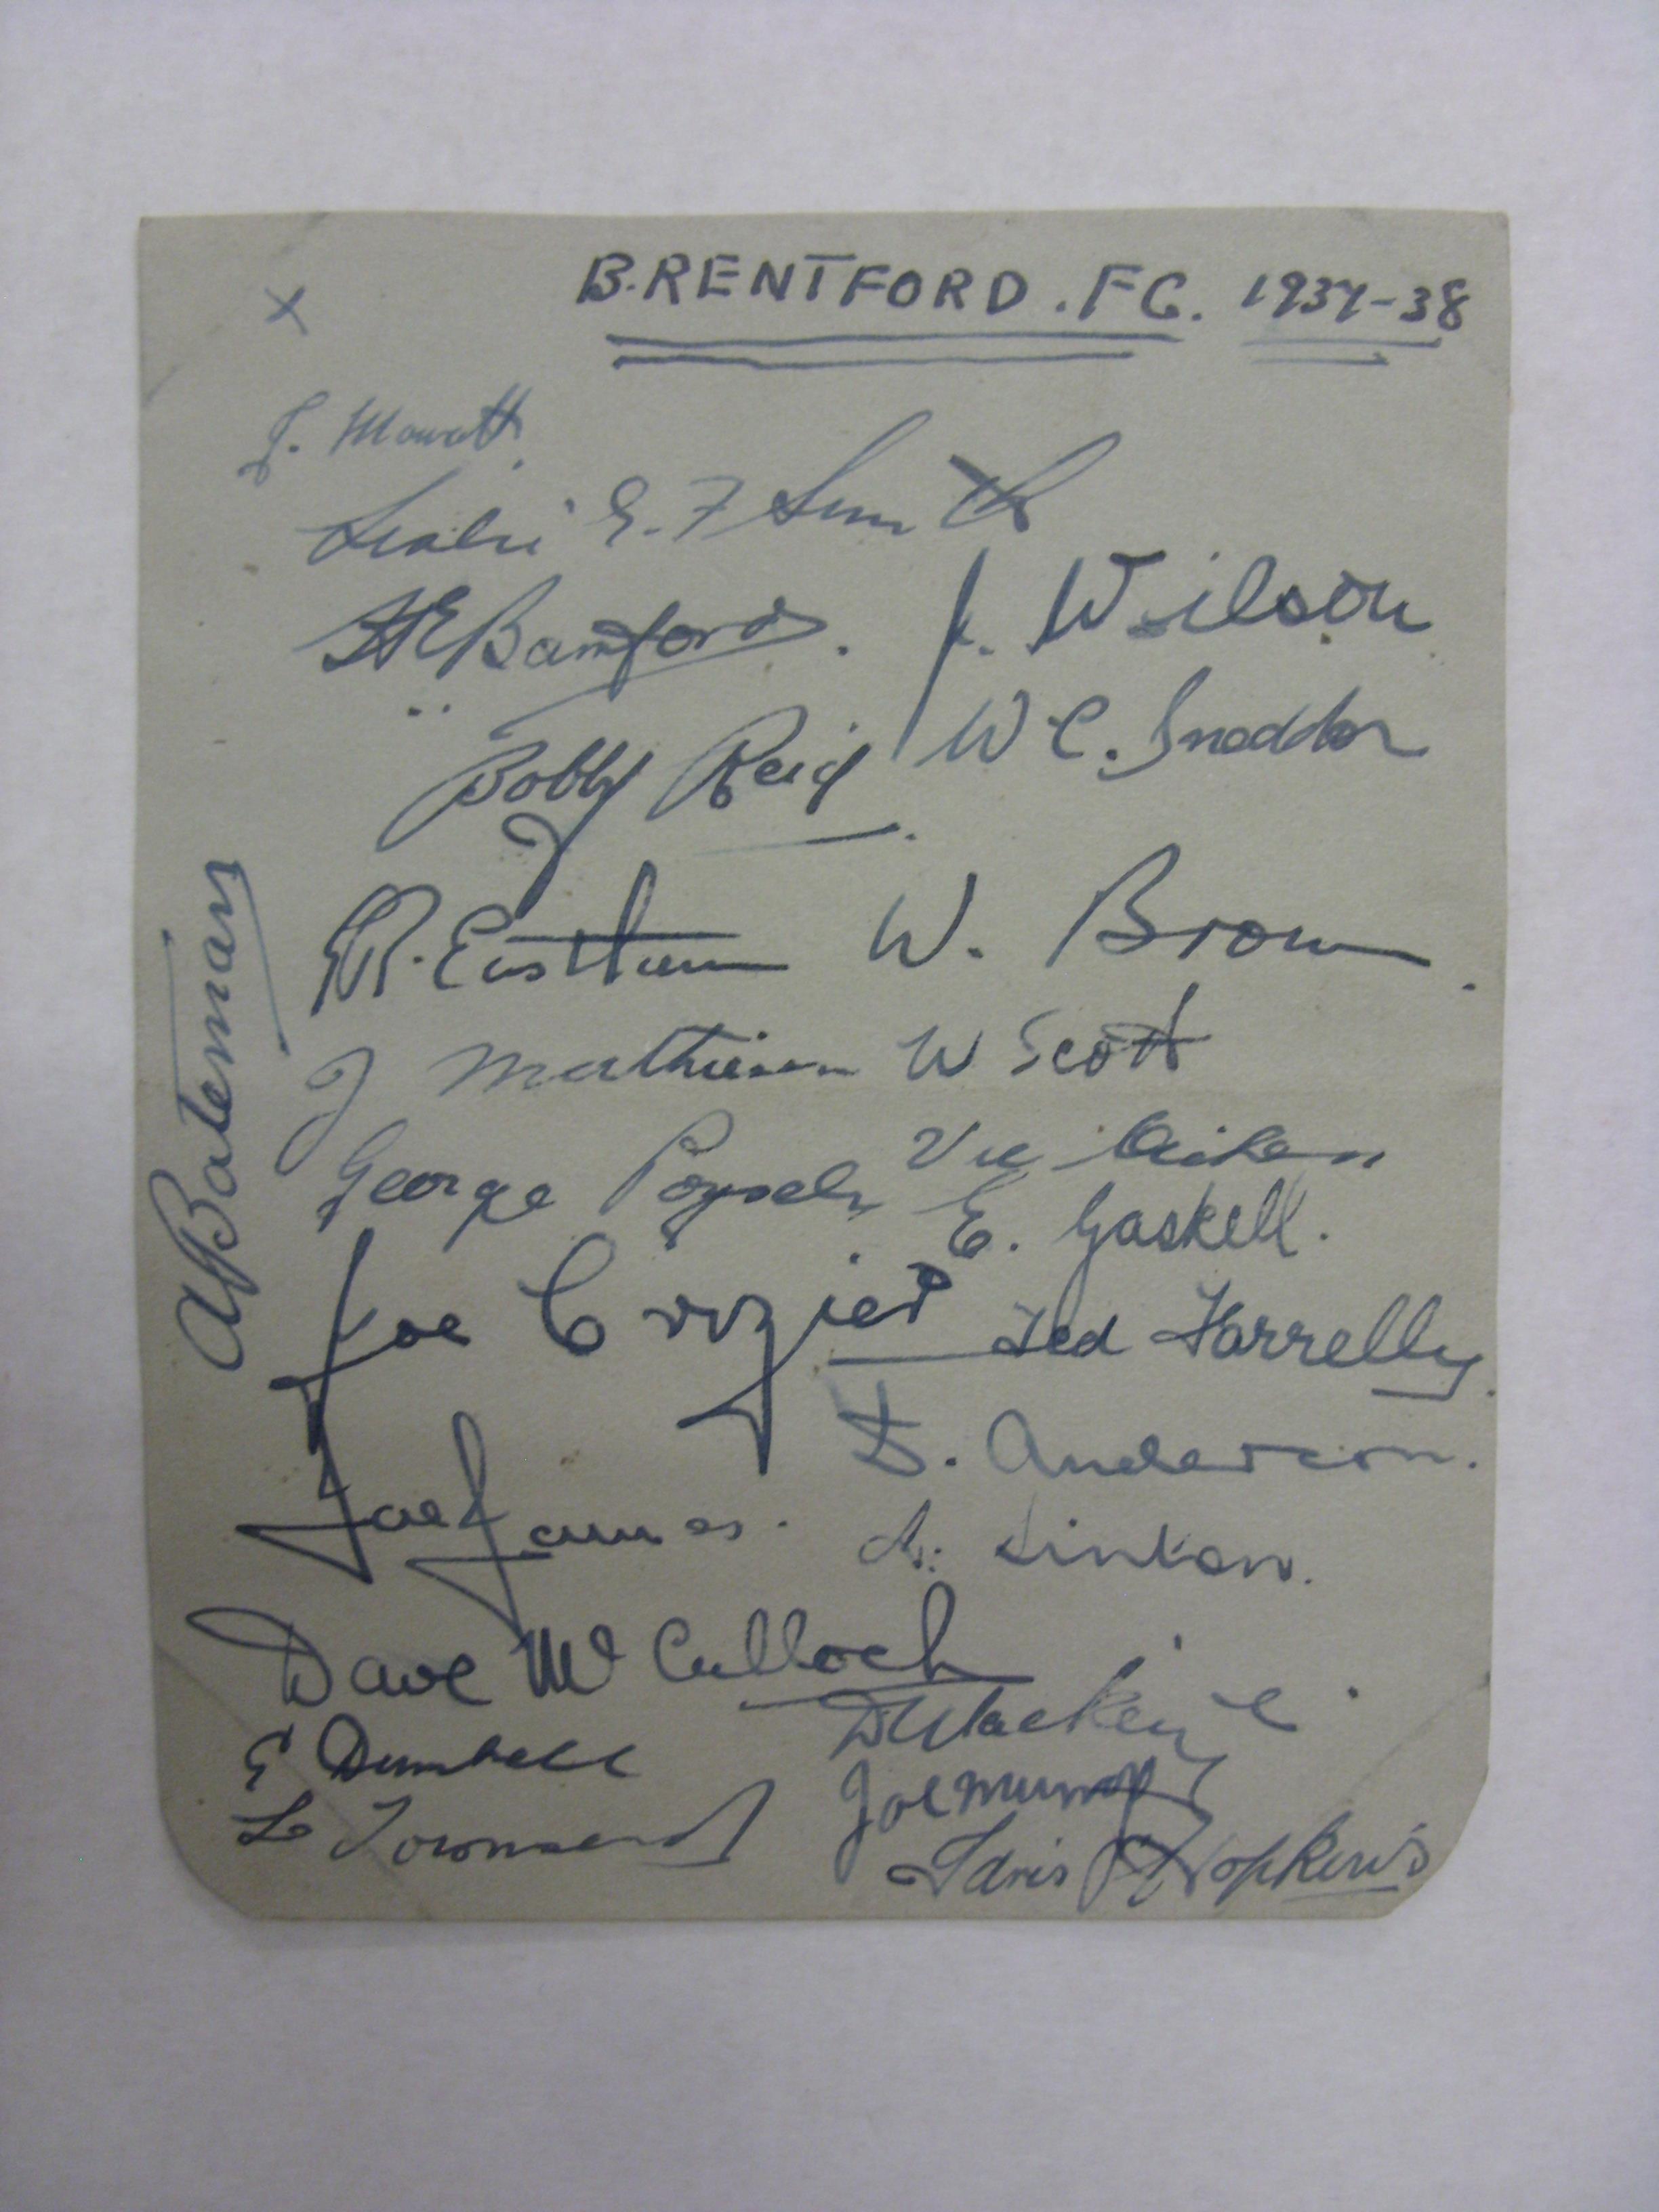 x
B.RENTFORD.FC. 1937-38
J. Mowatt.
Leslie G. F Smith
H E Bamford.
J. Wilson
Bobby Reid.
W C. Sneddon
R. Eastham
W. Brown.
J Mathieson
W Scott
George Poyser
Vic Aicken
E. Gaskell.
Joe Crozier
Ted Farrelly.
D. Anderson.
Joe James.
A. Linton.
Dave McCulloch
D Mackenzie.
E Dumbell
Joe Murray
L Townsend
Idris Hopkins
Alf Bateman